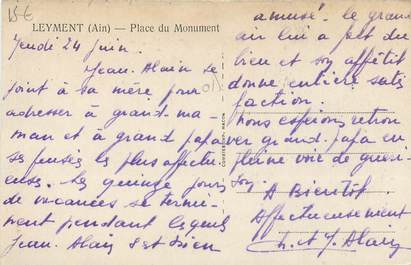 15€
LEYMENT (Ain) – Place du Monument
Jeudi 24 juin.
Jean. Alain se
joint à sa mère pour
adresser à grand-ma-
man et à grand papa
ses pensées les plus affectu-
euses. Les quinze jours
de vacances se termi-
nent pendant lesquels
Jean. Alain s'est bien
amusé. le grand
air lui a fait du
bien et son appétit
donne entière satis
faction.
Nous espérions retrou
ver grand-papa en
pleine voie de guéri-
son.
A Bientôt
Affectueusement
Ch. et J. Alain